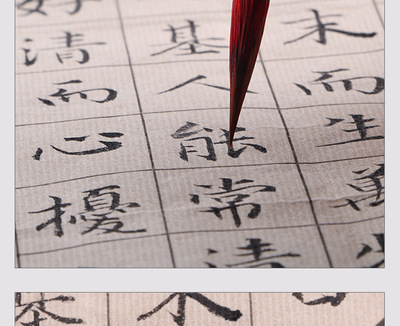 末而生萬
基人能常清
好清而心擾